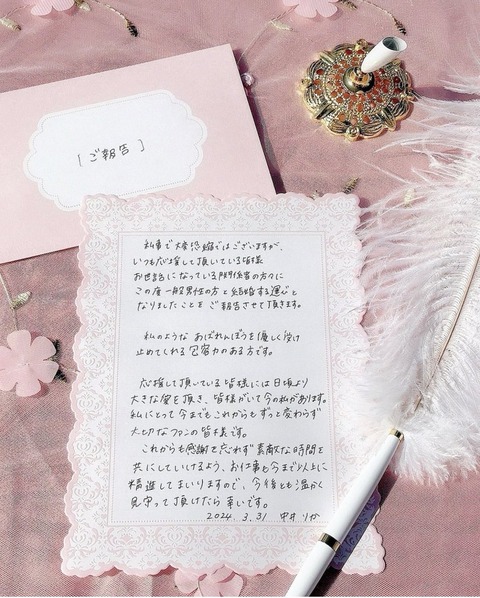 [ ご報告 ]
私事で大変恐縮ではございますが、
いつも応援して頂いている皆様
お世話になっている関係者の方々に
この度一般男性の方と結婚する運びと
なりましたことをご報告させて頂きます。
私のような あばれんぼうを優しく受け
止めてくれる包容力のある方です。
応援して頂いている皆様には日頃より
大きな愛を頂き、皆様がいて今の私があります。
私にとって今までもこれからもずっと変わらず
大切なファンの皆様です。
これからも感謝を忘れず素敵な時間を
共にしていけるよう、お仕事も今まで以上に
精進してまいりますので、今後とも温かく
見守って頂けたら幸いです。
2024. 3. 31 中井りか